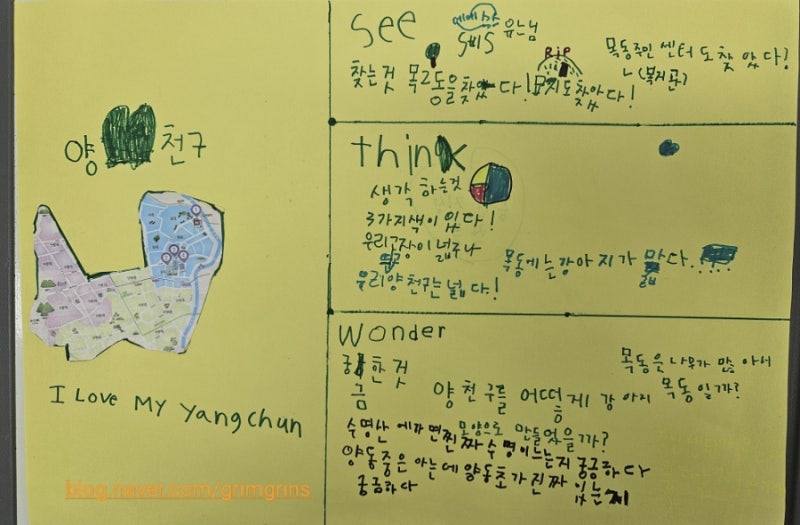 양천구
I Love My Yangchun
see
SBS 유느님
찾는것 목2동을찾았다! 묘지도찾았다!
RiP
목동주민 센터 도찾 았다!
ㄴ(복지관)
think
생각 하는것
3가지색이 있다!
우리고장이 넓구나
우리양천구는 넓다!
목동에는강아지가 많다.....
Wonder
궁금한 것
양천구를 어떻게 강아지
모양으로 만들었을까?
목동은 나무가 많 아서
목동 일까?
수명산 에가면찐짜수명이느는지 궁금하다
양동중은 아는데 양동초가 진짜 있는지
궁금하다
blog.naver.com/grimgrins